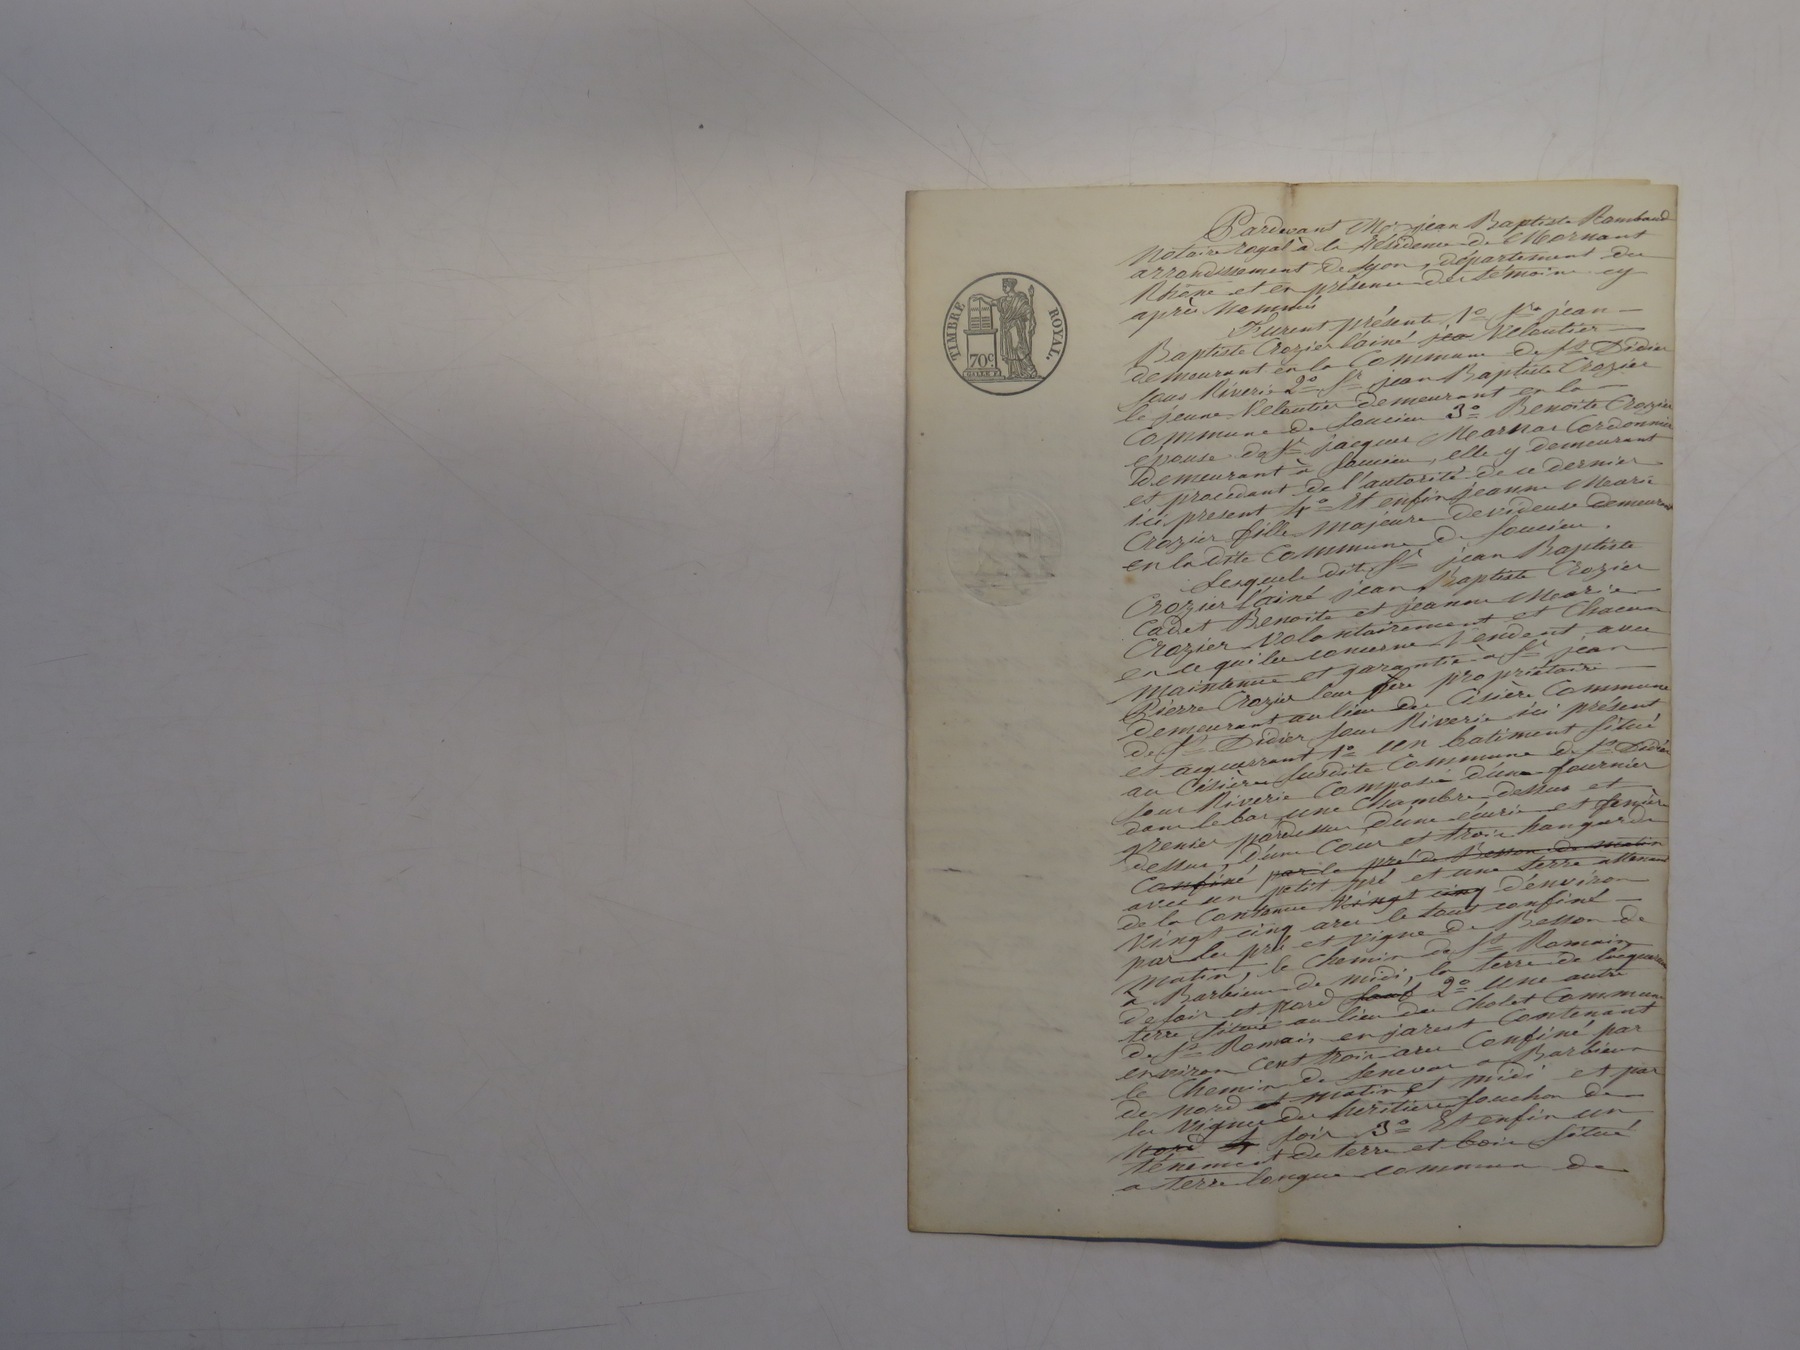 TIMBRE ROYAL.
70c.
Pardevant Me jean Baptiste Rambaud
Notaire royal à la résidence de Mornant
arrondissement de Lyon, département du
Rhône et en présence des témoins cy
après Nommés
Furent présents 1o Sr jean
Baptiste Crozier l'ainé Veloutier
demeurant en la Commune de St Didier
sous Riverie 2o Sr jean Baptiste Crozier
le jeune Veloutier demeurant en la
Commune de Soucieu 3o Benoite Crozier
épouse de Sr jacques Marnas Cordonnier
Demeurant à Soucieu, elle y demeurant
et procédant de l'autorité de ce dernier
ici présent 4o Et enfin jeanne Marie
Crozier fille Majeure devideuse demeurant
en la dite Commune de Soucieu.
Lesquels dits Sr jean Baptiste
Crozier l'ainé jean Baptiste Crozier
Cadet Benoite et jeanne Marie
Crozier Volontairement et Chacun
en ce qui les concerne Vendent avec
Maintenue et garantie à Sr jean
Pierre Crozier leur frère propriétaire
demeurant au lieu de Cisière Commune
de St Didier sous Riverie ici présent
et acquerrant 1o un batiment situé
au Cisière susdite Commune de St Didier
sous Riverie Composé d'une fournier
dans le bas une Chambre dessus et
grenier pardessus d'une écurie et fenière
dessus, d'une Cour et trois hangards
Confiné par le pré de Besson de matin
avec un petit pré et une terre attenant
de la Contenue Vingt cinq d'environ
Vingt cinq ares le tout confiné
par les pré et vigne de Besson de
Matin, le Chemin de St Romain
a Barbieux de midi, la terre de
de soir et nord 2o Une autre
terre située au lieu du Cholet Commune
de St Romain en jarest Contenant
environ Cent trois ares Confiné par
le Chemin de Senevas a Barbieux
de nord et matin et midi et par
la vigne des héritiers Souchon de
Nord soir 3o Et enfin un
ténement de terre et bois situé
a terre longue commune de